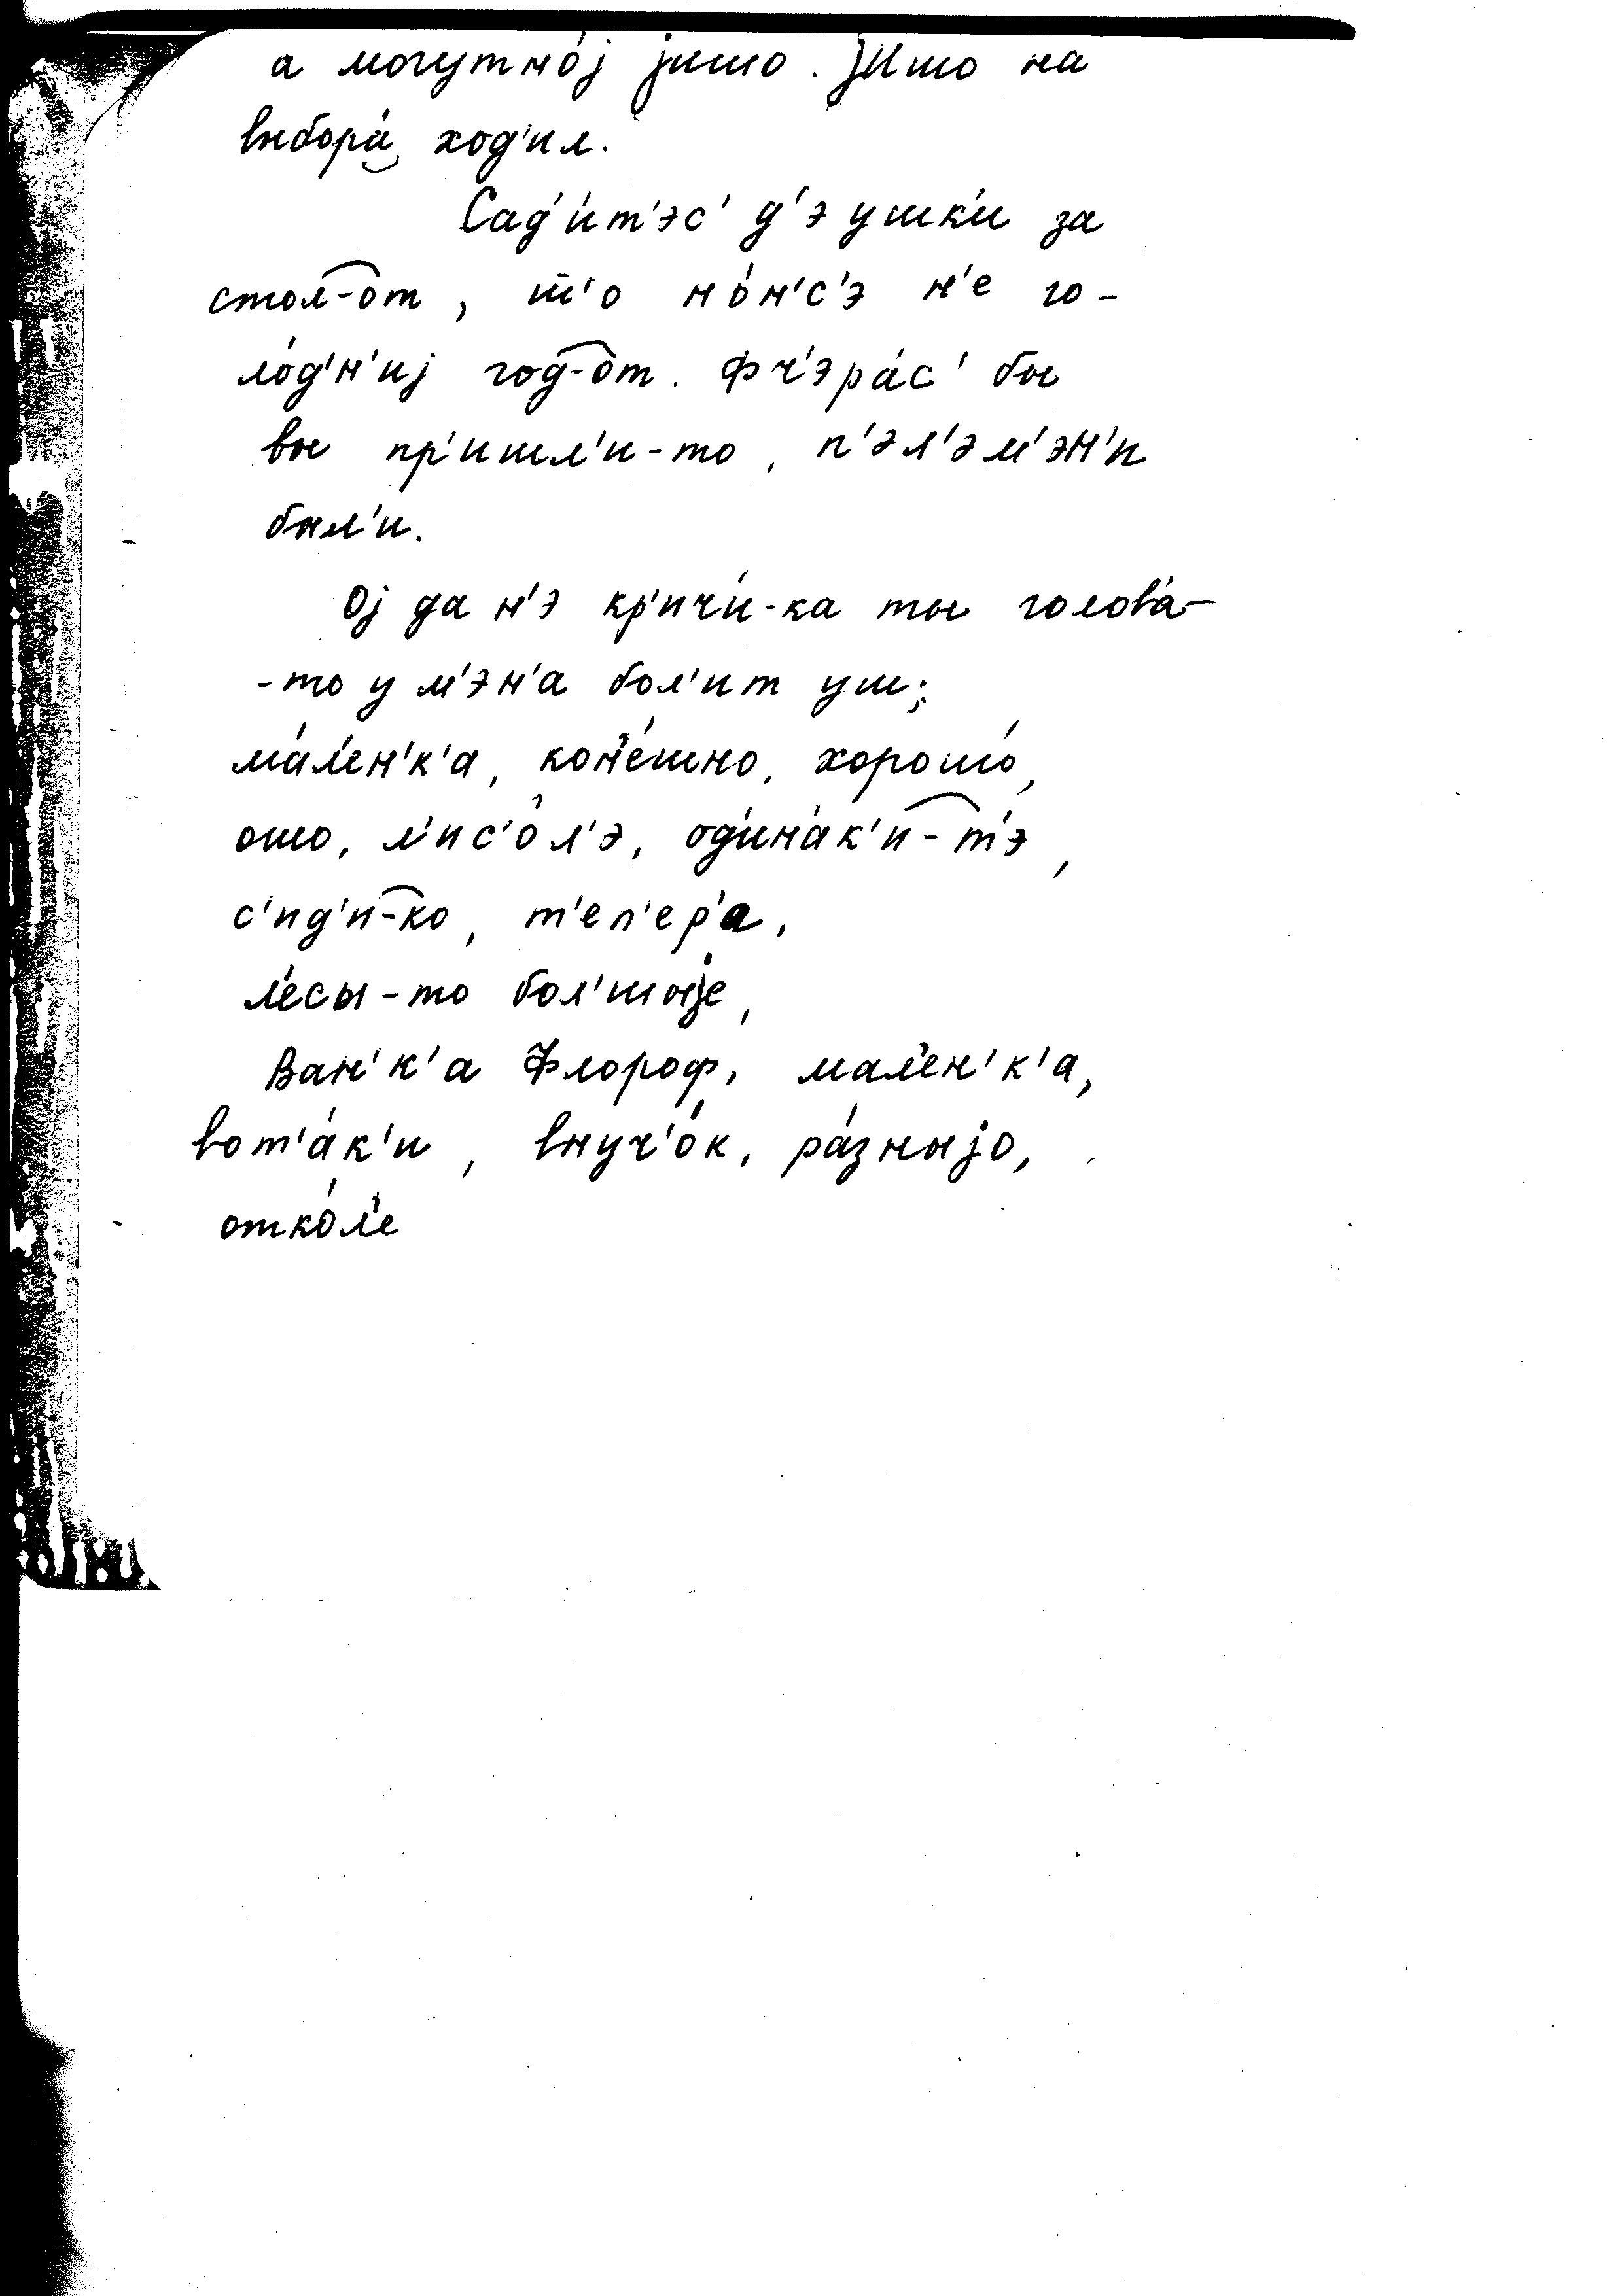 а могутно́ј јишо. Јишо на
выбора́ ход'ил.
Сад'и́т'эс' д'э ушк'и за
стол-от, ш'о но́н'с'э н'е го-
ло́д'н'иј год-от. Фч'эра́с' бы
вы пр'ишл'и-то, п'эл'эм'эн'и
был'и.
Ој да н'э кр'ичи́-ка ты голова́-
-то у м'эн'а бол'ит уш;
ма́л'ен'к'а, кон'е́шно, хорошо́,
ошо, л'ис'о́л'э, од'ина́к'и-т'э,
с'ид'и-ко, т'еп'ер'а,
л'есы-то бол'шыје,
Ван'к'а Флороф, мал'ен'к'а,
вот'а́к'и, внуч'о́к, ра́зныјо,
отко́л'е